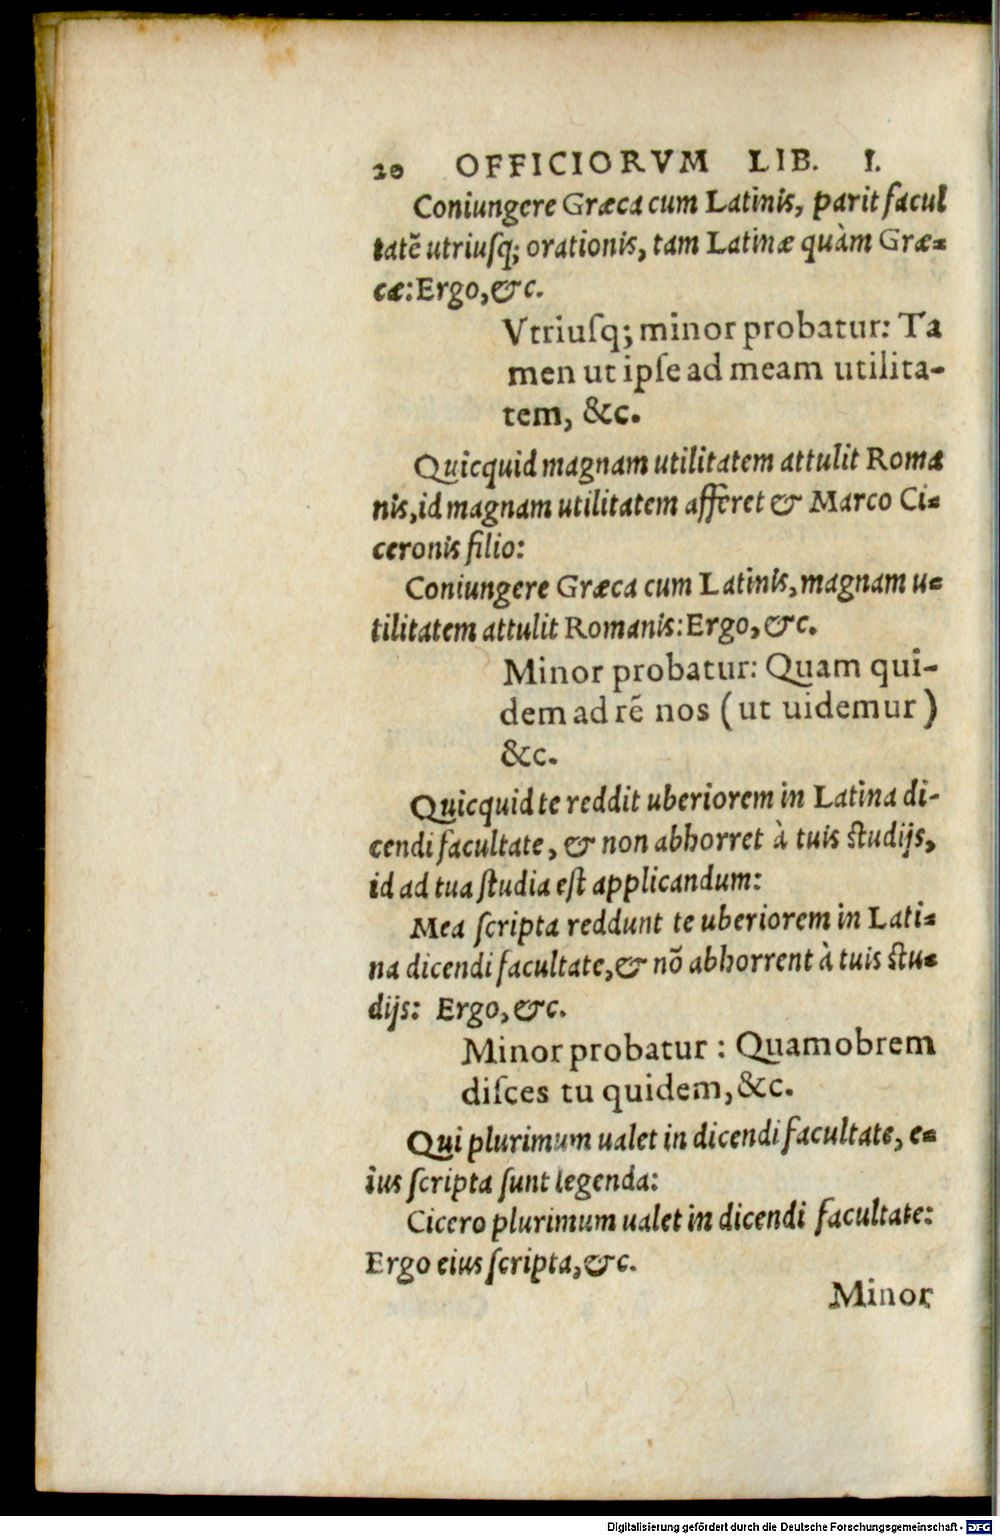 20 OFFICIORVM LIB. I.
Coniungere Græca cum Latinis, parit facul
tatē utriuſq; orationis, tam Latinæ quàm Græ-
cæ: Ergo, &c.
Vtriuſq; minor probatur: Ta
men ut ipſe ad meam utilita-
tem, &c.
Quicquid magnam utilitatem attulit Roma
nis, id magnam utilitatem afferet & Marco Ci-
ceronis filio:
Coniungere Græca cum Latinis, magnam u-
tilitatem attulit Romanis: Ergo, &c.
Minor probatur: Quam qui-
dem ad rē nos (ut uidemur)
&c.
Quicquid te reddit uberiorem in Latina di-
cendi facultate, & non abhorret à tuis ſtudijs,
id ad tua ſtudia eſt applicandum:
Mea ſcripta reddunt te uberiorem in Lati-
na dicendi facultate, & nō abhorrent à tuis ſtu-
dijs: Ergo, &c.
Minor probatur: Quamobrem
diſces tu quidem, &c.
Qui plurimum ualet in dicendi facultate, e-
ius ſcripta ſunt legenda:
Cicero plurimum ualet in dicendi facultate:
Ergo eius ſcripta, &c.
Minor
Digitalisierung gefördert durch die Deutsche Forschungsgemeinschaft - DFG